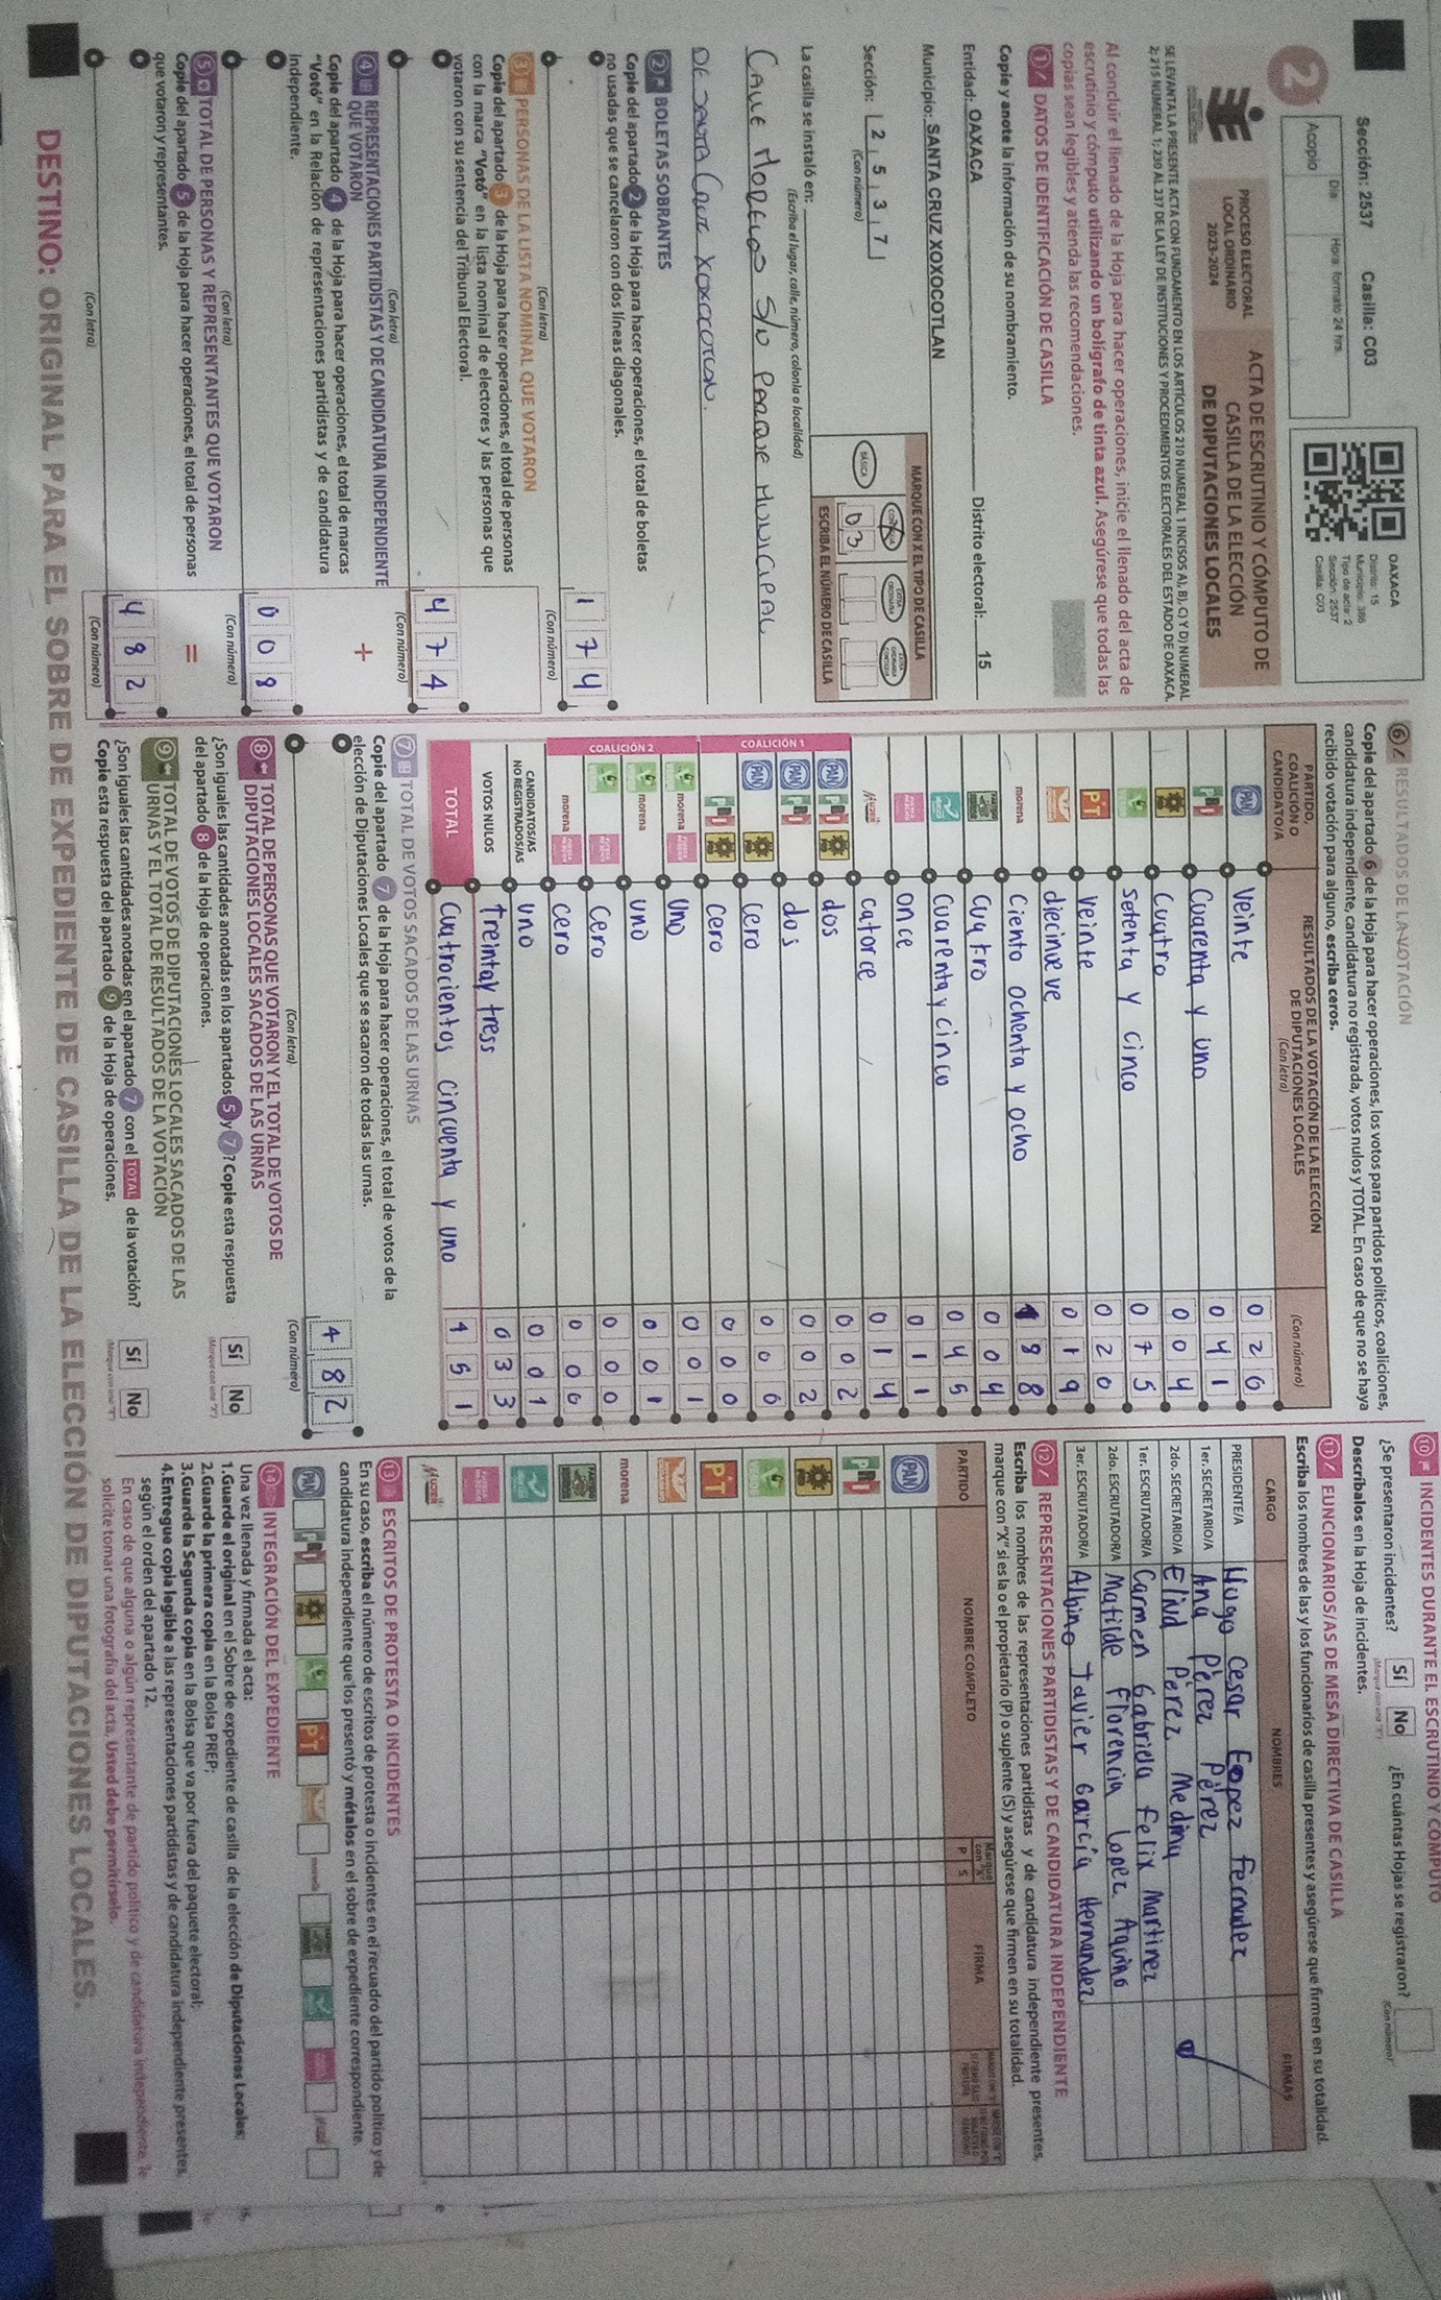 Sección: 2537 Casilla: C03
2
Acopio
Día
Hora formato 24 hrs.
OAXACA
Distrito: 15
Municipio: 386
Tipo de acta: 2
Sección: 2537
Casilla: C03
PROCESO ELECTORAL
LOCAL ORDINARIO
2023-2024
ACTA DE ESCRUTINIO Y CÓMPUTO DE
CASILLA DE LA ELECCIÓN
DE DIPUTACIONES LOCALES
SE LEVANTA LA PRESENTE ACTA CON FUNDAMENTO EN LOS ARTÍCULOS 210 NUMERAL 1 INCISOS A), B), C) Y D) NUMERAL
2; 215 NUMERAL 1; 230 AL 237 DE LA LEY DE INSTITUCIONES Y PROCEDIMIENTOS ELECTORALES DEL ESTADO DE OAXACA.
Al concluir el llenado de la Hoja para hacer operaciones, inicie el llenado del acta de
escrutinio y cómputo utilizando un bolígrafo de tinta azul. Asegúrese que todas las
copias sean legibles y atienda las recomendaciones.
1 DATOS DE IDENTIFICACIÓN DE CASILLA
Copie y anote la información de su nombramiento.
Entidad: OAXACA Distrito electoral: 15
Municipio: SANTA CRUZ XOXOCOTLAN
Sección: 2 5 3 7
(Con número)
MARQUE CON X EL TIPO DE CASILLA
BÁSICA
03
ESCRIBA EL NÚMERO DE CASILLA
La casilla se instaló en:
(Escriba el lugar, calle, número, colonia o localidad)
CALLE MORELOS S/N PARQUE MUNICIPAL
DE SANTA CRUZ XOXOCOTLAN.
2 BOLETAS SOBRANTES
Copie del apartado 2 de la Hoja para hacer operaciones, el total de boletas
no usadas que se cancelaron con dos líneas diagonales.
1 7 4
(Con letra) (Con número)
3 PERSONAS DE LA LISTA NOMINAL QUE VOTARON
Copie del apartado 3 de la Hoja para hacer operaciones, el total de personas
con la marca "Votó" en la lista nominal de electores y las personas que
votaron con su sentencia del Tribunal Electoral.
4 7 4
(Con letra) (Con número)
4 REPRESENTACIONES PARTIDISTAS Y DE CANDIDATURA INDEPENDIENTE
QUE VOTARON
+
Copie del apartado 4 de la Hoja para hacer operaciones, el total de marcas
"Votó" en la Relación de representaciones partidistas y de candidatura
independiente.
0 0 8
(Con letra) (Con número)
5 TOTAL DE PERSONAS Y REPRESENTANTES QUE VOTARON
=
Copie del apartado 5 de la Hoja para hacer operaciones, el total de personas
que votaron y representantes.
4 8 2
(Con letra) (Con número)
6 RESULTADOS DE LA VOTACIÓN
Copie del apartado 6 de la Hoja para hacer operaciones, los votos para partidos políticos, coaliciones,
candidatura independiente, candidatura no registrada, votos nulos y TOTAL. En caso de que no se haya
recibido votación para alguno, escriba ceros.
PARTIDO, COALICIÓN O CANDIDATO/A
RESULTADOS DE LA VOTACIÓN DE LA ELECCIÓN
DE DIPUTACIONES LOCALES
(Con letra) (Con número)
PAN Veinte 0 2 6
PRI Cuarenta y uno 0 4 1
PRD Cuatro 0 0 4
Setenta y cinco 0 7 5
PT veinte 0 2 0
diecinueve 0 1 9
morena Ciento ochenta y ocho 1 8 8
Cuatro 0 0 4
Cuarenta y cinco 0 4 5
once 0 1 1
catorce 0 1 4
COALICIÓN 1
PAN PRI PRD dos 0 0 2
PAN PRI dos 0 0 2
PAN PRD cero 0 0 0
PRI PRD cero 0 0 0
COALICIÓN 2
morena Uno 0 0 1
morena uno 0 0 1
Cero 0 0 0
morena cero 0 0 0
CANDIDATOS/AS
NO REGISTRADOS/AS uno 0 0 1
VOTOS NULOS treinta y tress 0 3 3
TOTAL Cuatrocientos cincuenta y uno 4 5 1
7 TOTAL DE VOTOS SACADOS DE LAS URNAS
Copie del apartado 7 de la Hoja para hacer operaciones, el total de votos de la
elección de Diputaciones Locales que se sacaron de todas las urnas.
4 8 2
(Con letra) (Con número)
8 TOTAL DE PERSONAS QUE VOTARON Y EL TOTAL DE VOTOS DE
DIPUTACIONES LOCALES SACADOS DE LAS URNAS
¿Son iguales las cantidades anotadas en los apartados 5 y 7? Copie esta respuesta
del apartado 8 de la Hoja de operaciones.
Sí No
9 TOTAL DE VOTOS DE DIPUTACIONES LOCALES SACADOS DE LAS
URNAS Y EL TOTAL DE RESULTADOS DE LA VOTACIÓN
¿Son iguales las cantidades anotadas en el apartado 7 con el TOTAL de la votación?
Copie esta respuesta del apartado 9 de la Hoja de operaciones.
Sí No
10 INCIDENTES DURANTE EL ESCRUTINIO Y CÓMPUTO
¿Se presentaron incidentes? Sí No ¿En cuántas Hojas se registraron?
(Con número)
Descríbalos en la Hoja de incidentes.
11 FUNCIONARIOS/AS DE MESA DIRECTIVA DE CASILLA
Escriba los nombres de las y los funcionarios de casilla presentes y asegúrese que firmen en su totalidad.
CARGO NOMBRES FIRMAS
PRESIDENTE/A Hugo Cesar Lopez Fernndez
1er. SECRETARIO/A Ana Pèrez Pèrez
2do. SECRETARIO/A Eliud Pérez Medina
1er. ESCRUTADOR/A Carmen Gabriela Felix Martinez
2do. ESCRUTADOR/A Matilde Florencia Lopez Aquino
3er. ESCRUTADOR/A Albino Javier García Hernandez
12 REPRESENTACIONES PARTIDISTAS Y DE CANDIDATURA INDEPENDIENTE
Escriba los nombres de las representaciones partidistas y de candidatura independiente presentes,
marque con "X" si es la o el propietario (P) o suplente (S) y asegúrese que firmen en su totalidad.
PARTIDO NOMBRE COMPLETO Marque con "X" P S FIRMA
PAN
PRI
PRD
PT
morena
13 ESCRITOS DE PROTESTA O INCIDENTES
En su caso, escriba el número de escritos de protesta o incidentes en el recuadro del partido político y de
candidatura independiente que los presentó y métalos en el sobre de expediente correspondiente.
PAN PRI PRD PT morena
14 INTEGRACIÓN DEL EXPEDIENTE
Una vez llenada y firmada el acta:
1.Guarde el original en el Sobre de expediente de casilla de la elección de Diputaciones Locales;
2.Guarde la primera copia en la Bolsa PREP;
3.Guarde la Segunda copia en la Bolsa que va por fuera del paquete electoral;
4.Entregue copia legible a las representaciones partidistas y de candidatura independiente presentes,
según el orden del apartado 12.
En caso de que alguna o algún representante de partido político y de candidatura independiente, le
solicite tomar una fotografía del acta, Usted debe permitírselo.
DESTINO: ORIGINAL PARA EL SOBRE DE EXPEDIENTE DE CASILLA DE LA ELECCIÓN DE DIPUTACIONES LOCALES.